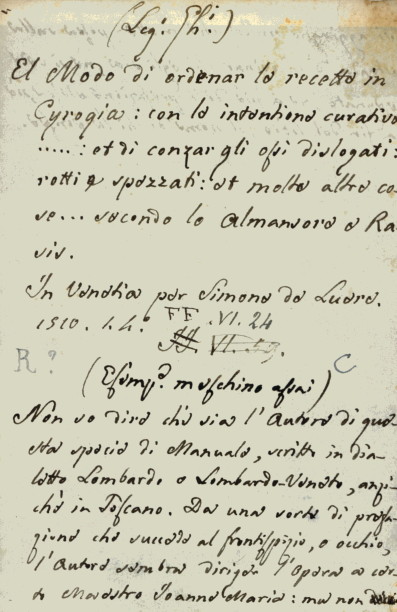 (Leg. Ghi.)
El Modo di ordenar le recette in
Cyrogia: con la intentione curativa
.....: et di conzar gli ossi dislogati:
rotti e spezzati: et molte altre co-
se... secondo lo Almansore e Ra-
sis.
In Venetia per Simone de Luere.
1510. i. 4.o FF .VI. 24
R.o C
(Esemp.o meschino assai)
Non so dire chè sia l'Autore di que-
sta specie di Manuale, scritto in dia-
letto Lombardo o Lombardo-Veneto, anzi-
chè in Toscano. Da una sorte di prefa-
zione che succede al frontispizio, o occhio,
l'Autore sembra diriger l'Opera a cer-
to Maestro Joanne Maria: ma non